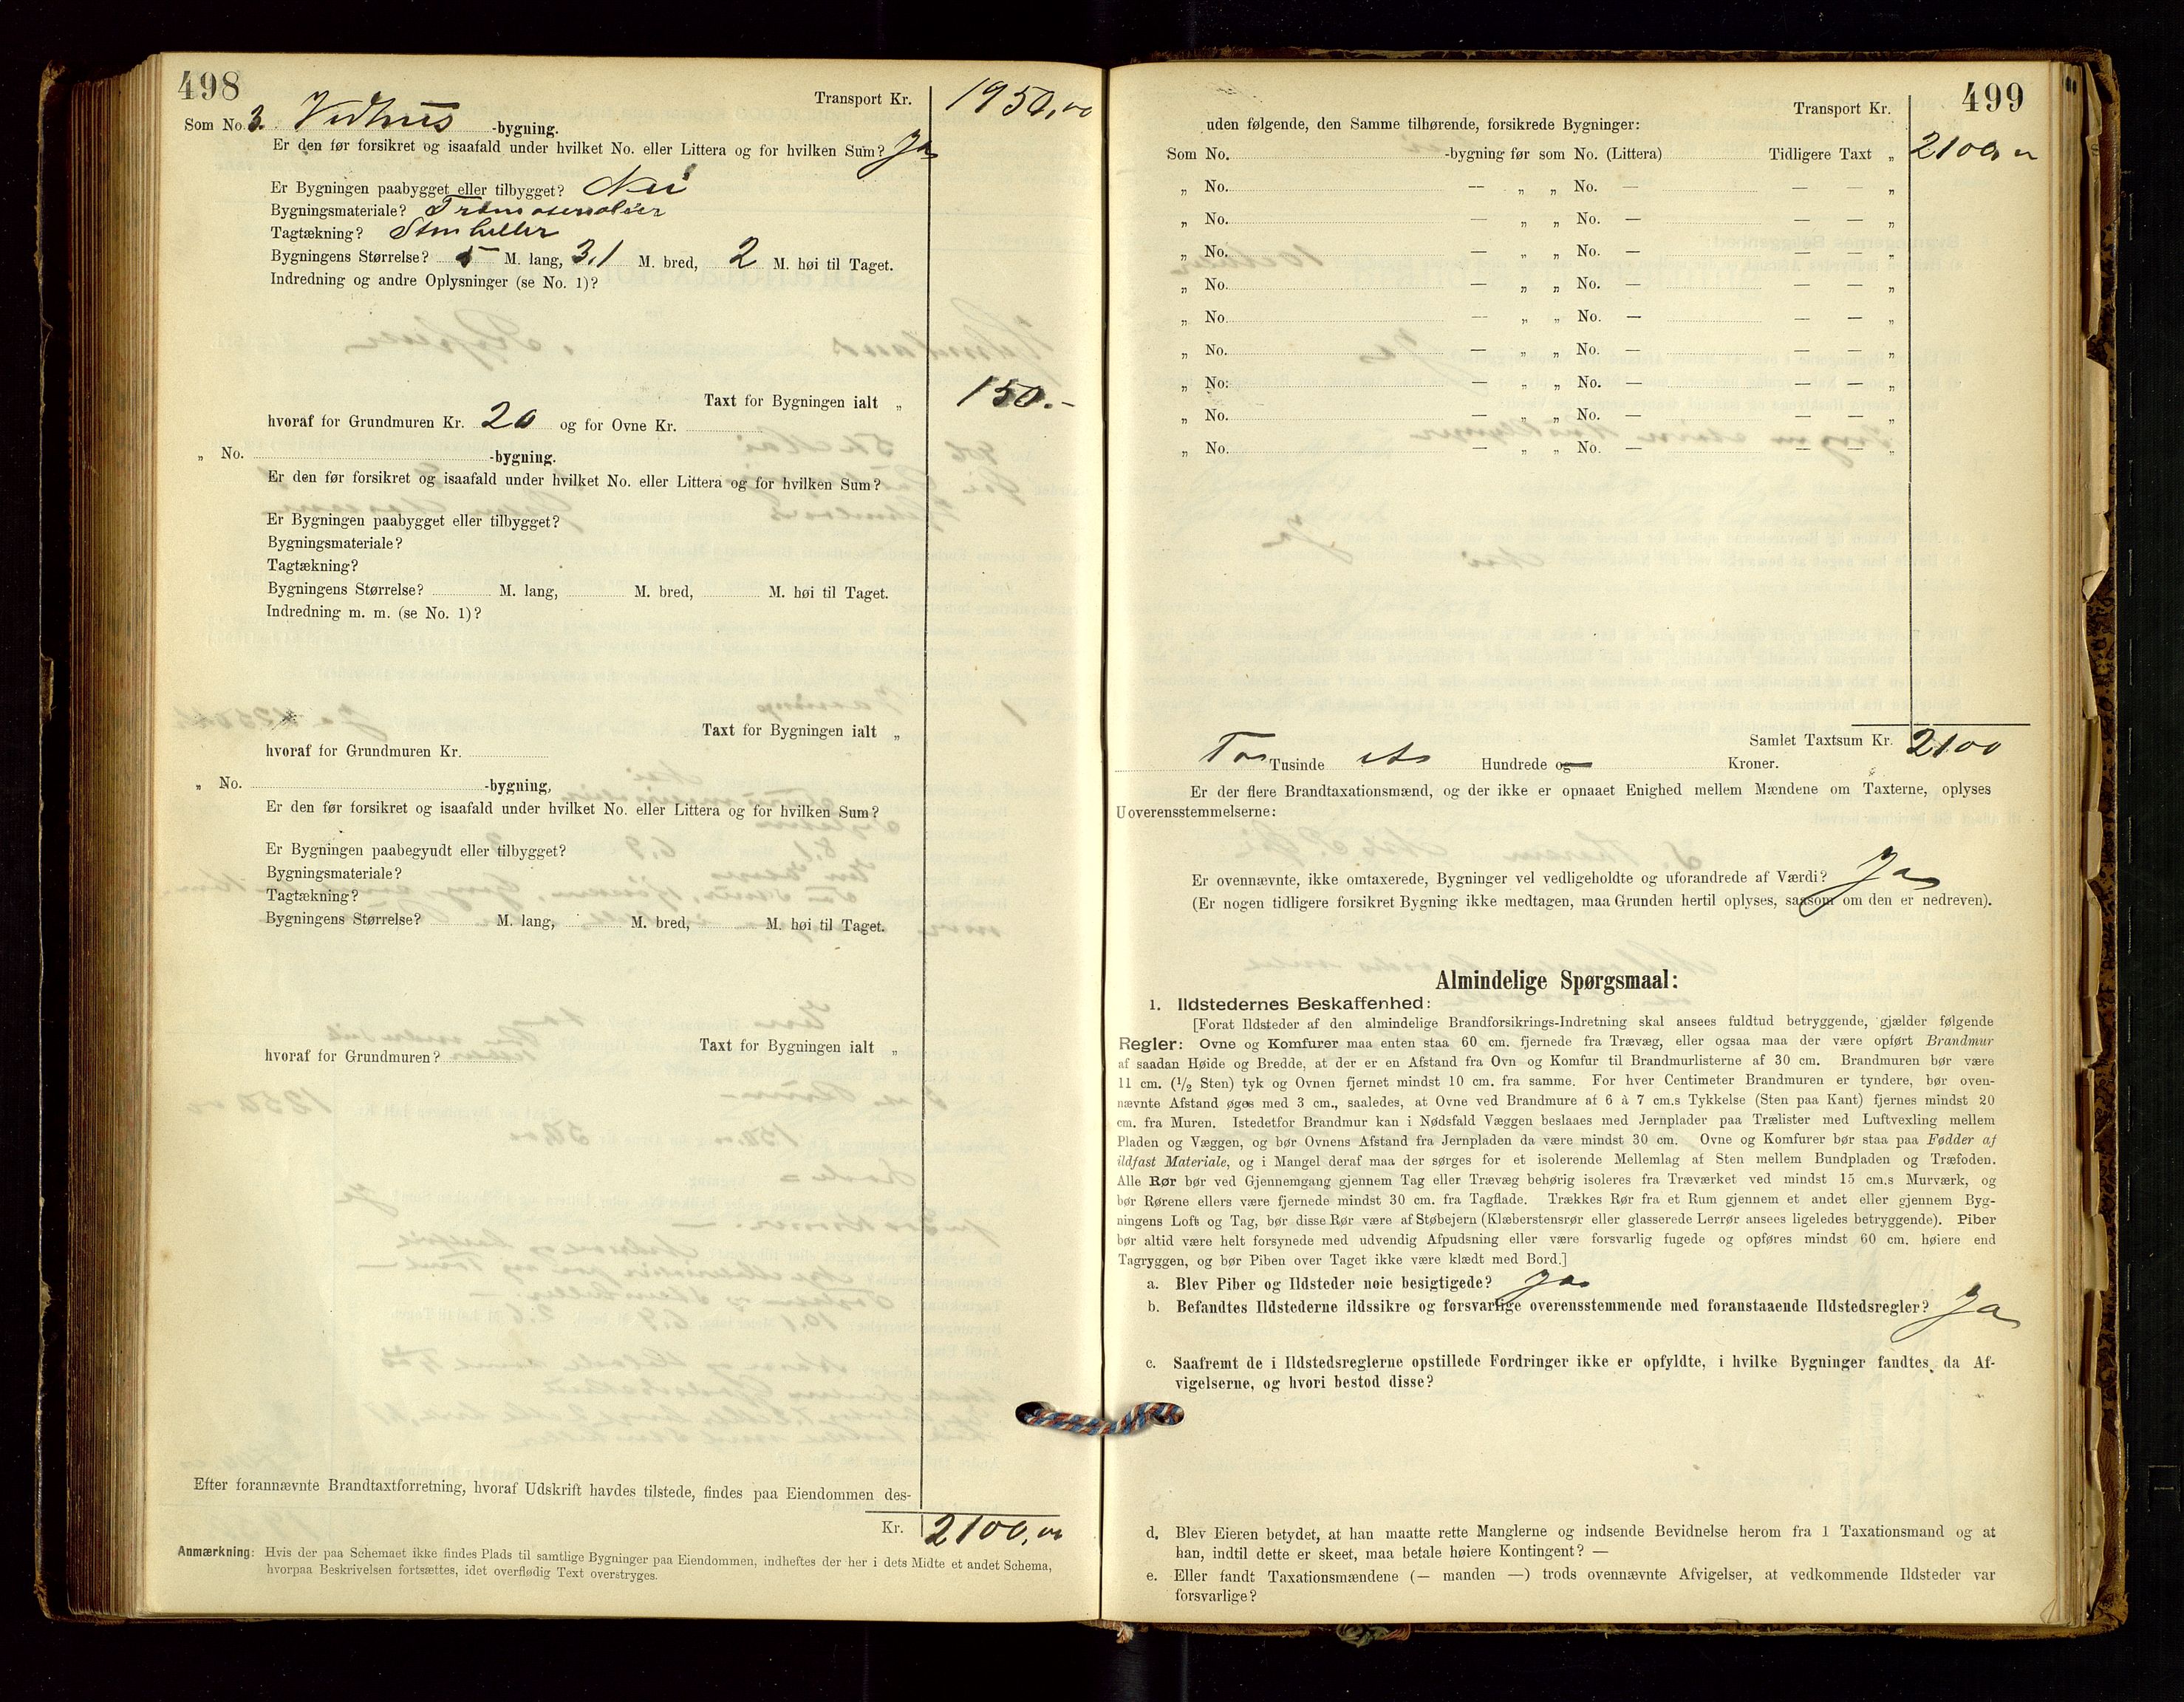 498
Transport Kr. 1950,00
Som No 3. Vedhus -bygning.
Er den før forsikret og isaafald under hvilket No. eller Littera og for hvilken Sum? Ja
Er Bygningen paabygget eller tilbygget? Nei
Bygningsmateriale?
Tagtækning? Stenheller
Bygningens Størrelse? 5 M. lang, 3,1 M. bred, 2 M. høi til Taget.
Indredning og andre Oplysninger (se No. 1)?
Taxt for Bygningen ialt „ 150.-
hvoraf for Grundmuren Kr. 20 og for Ovne Kr.
„ No. -bygning.
Er den før forsikret og isaafald under hvilket No. eller Littera og for hvilken Sum?
Er Bygningen paabygget eller tilbygget?
Bygningsmateriale?
Tagtækning?
Bygningens Størrelse? M. lang, M. bred, M. høi til Taget.
Indredning m. m. (se No. 1)?
Taxt for Bygningen ialt „
hvoraf for Grundmuren Kr.
„ No. -bygning,
Er den før forsikret og isaafald under hvilket No. eller Littera og for hvilken Sum?
Er Bygningen paabegyudt eller tilbygget?
Bygningsmateriale?
Tagtækning?
Bygningens Størrelse? M. lang, M. bred, M. høi til Taget.
Taxt for Bygningen ialt „
hvoraf for Grundmuren?
Efter forannævnte Brandtaxtforretning, hvoraf Udskrift havdes tilstede, findes paa Eiendommen des-
Kr. 2100,00
Anmærkning: Hvis der paa Schemaet ikke findes Plads til samtlige Bygninger paa Eiendommen, indheftes der her i dets Midte et andet Schema,
hvorpaa Beskrivelsen fortsættes, idet overflødig Text overstryges.
499
Transport Kr.
uden følgende, den Samme tilhørende, forsikrede Bygninger:
Som No. -bygning før som No. (Littera) Tidligere Taxt „ 2100
„ No. — „ „ No. — — — „
„ No. — „ „ No. — — — „
„ No. — „ „ No. — — — „
„ No. — „ „ No. — — — „
„ No. — „ „ No. — — — „
„ No. — „ „ No. — — — „
„ No: — „ „ No. — — — „
„ No. — „ „ No. — — — „
„ No. — „ „ No. — — — „
Samlet Taxtsum Kr. 2100
To Tusinde et Hundrede og Kroner.
Er der flere Brandtaxationsmænd, og der ikke er opnaaet Enighed mellem Mændene om Taxterne, oplyses
Uoverensstemmelserne:
Er ovennævnte, ikke omtaxerede, Bygninger vel vedligeholdte og uforandrede af Værdi? Ja
(Er nogen tidligere forsikret Bygning ikke medtagen, maa Grunden hertil oplyses, saasom om den er nedreven).
Almindelige Spørgsmaal:
1. Ildstedernes Beskaffenhed:
[Forat Ildsteder af den almindelige Brandforsikrings-Indretning skal ansees fuldtud betryggende, gjælder følgende
Regler: Ovne og Komfurer maa enten staa 60 cm. fjernede fra Trævæg, eller ogsaa maa der være opført Brandmur
af saadan Høide og Bredde, at der er en Afstand fra Ovn og Komfur til Brandmurlisterne af 30 cm. Brandmuren bør være
11 cm. (½ Sten) tyk og Ovnen fjernet mindst 10 cm. fra samme. For hver Centimeter Brandmuren er tyndere, bør oven-
nævnte Afstand øges med 3 cm., saaledes, at Ovne ved Brandmure af 6 à 7 cm.s Tykkelse (Sten paa Kant) fjernes mindst 20
cm. fra Muren. Istedetfor Brandmur kan i Nødsfald Væggen beslaaes med Jernplader paa Trælister med Luftvexling mellem
Pladen og Væggen, og bør Ovnens Afstand fra Jernpladen da være mindst 30 cm. Ovne og Komfurer bør staa paa Fødder af
ildfast Materiale, og i Mangel deraf maa der sørges for et isolerende Mellemlag af Sten mellem Bundpladen og Træfoden.
Alle Rør bør ved Gjennemgang gjennem Tag eller Trævæg behørig isoleres fra Træværket ved mindst 15 cm.s Murværk, og
bør Rørene ellers være fjernede mindst 30 cm. fra Tagflade. Trækkes Rør fra et Rum gjennem et andet eller gjennem Byg-
ningens Loft og Tag, bør disse Rør være af Støbejern (Klæberstensrør eller glasserede Lerrør ansees ligeledes betryggende). Piber
bør altid være helt forsynede med udvendig Afpudsning eller være forsvarlig fugede og opføres mindst 60 cm. høiere end
Tagryggen, og bør Piben over Taget ikke være klædt med Bord.]
a. Blev Piber og Ildsteder nøie besigtigede? Ja
b. Befandtes Ildstederne ildssikre og forsvarlige overensstemmende med foranstaaende Ildstedsregler? Ja
c. Saafremt de i Ildstedsreglerne opstillede Fordringer ikke er opfyldte, i hvilke Bygninger fandtes da Af-
vigelserne, og hvori bestod disse?
d. Blev Eieren betydet, at han maatte rette Manglerne og indsende Bevidnelse herom fra 1 Taxationsmand og at
han, indtil dette er skeet, maa betale høiere Kontingent? —
e. Eller fandt Taxationsmændene (— manden —) trods ovennævnte Afvigelser, at vedkommende Ildsteder var
forsvarlige?